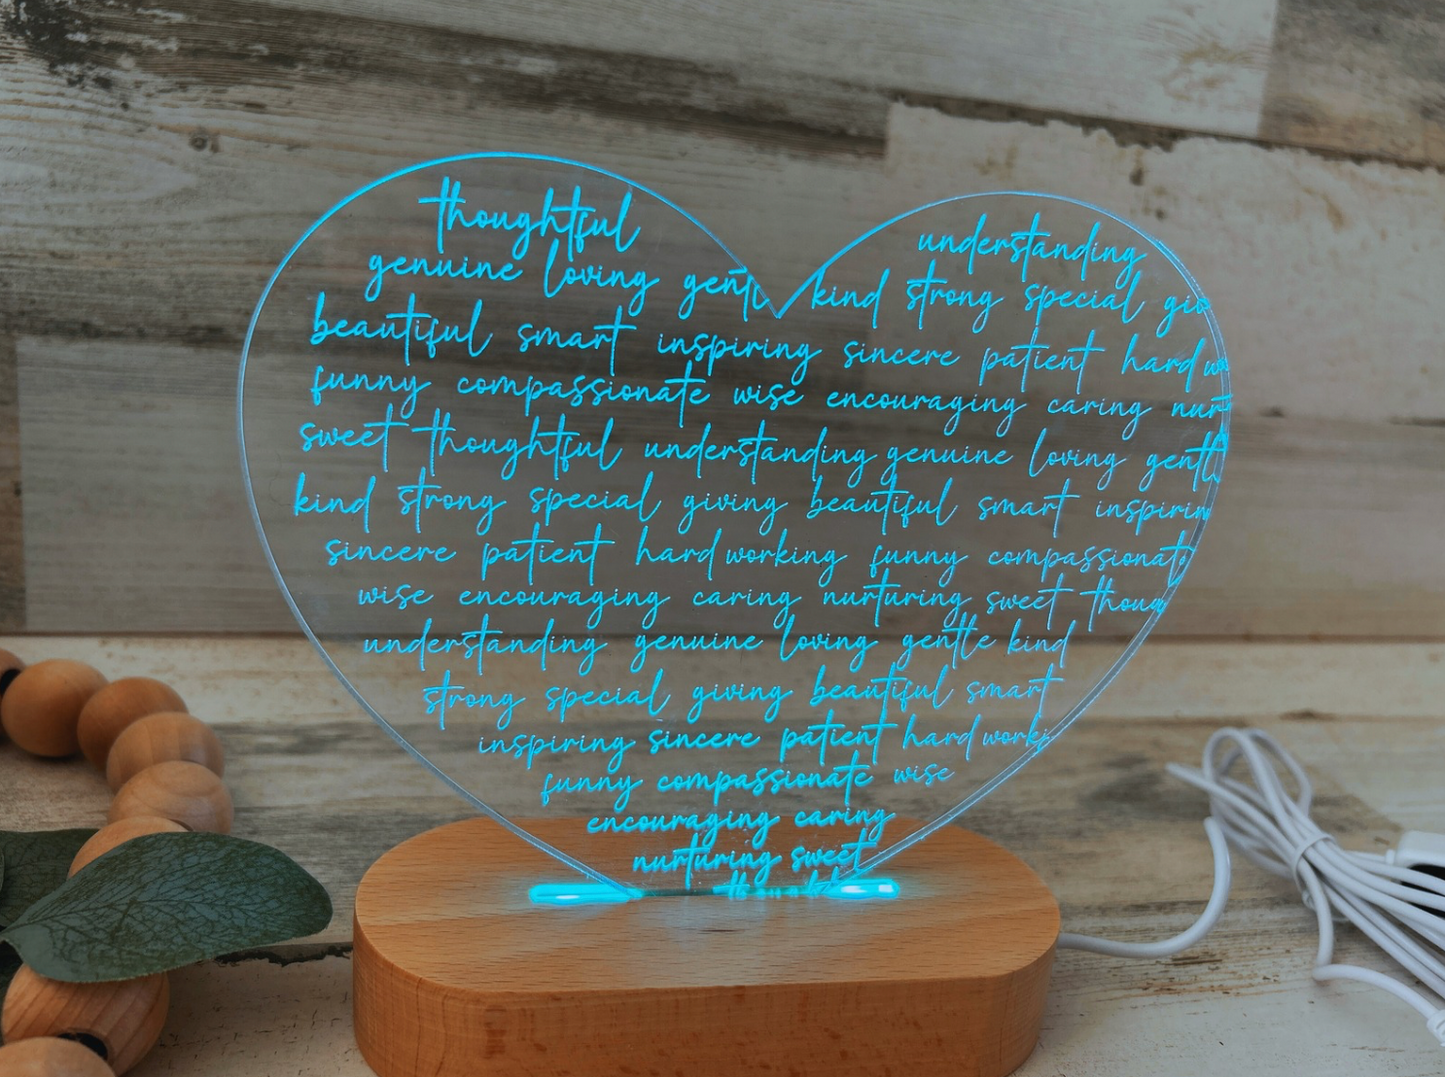 thoughtful understanding
genuine loving gentl kind strong special giv
beautiful smart inspiring sincere patient hard w
funny compassionate wise encouraging caring nurt
sweet thoughtful understanding genuine loving gentl
kind strong special giving beautiful smart inspirin
sincere patient hard working funny compassionat
wise encouraging caring nurturing sweet thoug
understanding genuine loving gentle kind
strong special giving beautiful smart
inspiring sincere patient hard worki
funny compassionate wise
encouraging caring
nurturing sweet